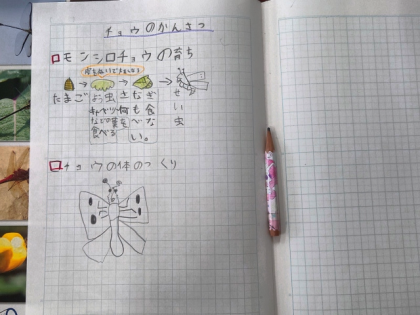 チョウのかんさつ
モンシロチョウの育ち
たまご
よう虫
キャベツ
などの葉を
食べる
さなぎ
何も食
べな
い。
せい虫
チョウの体のつくり